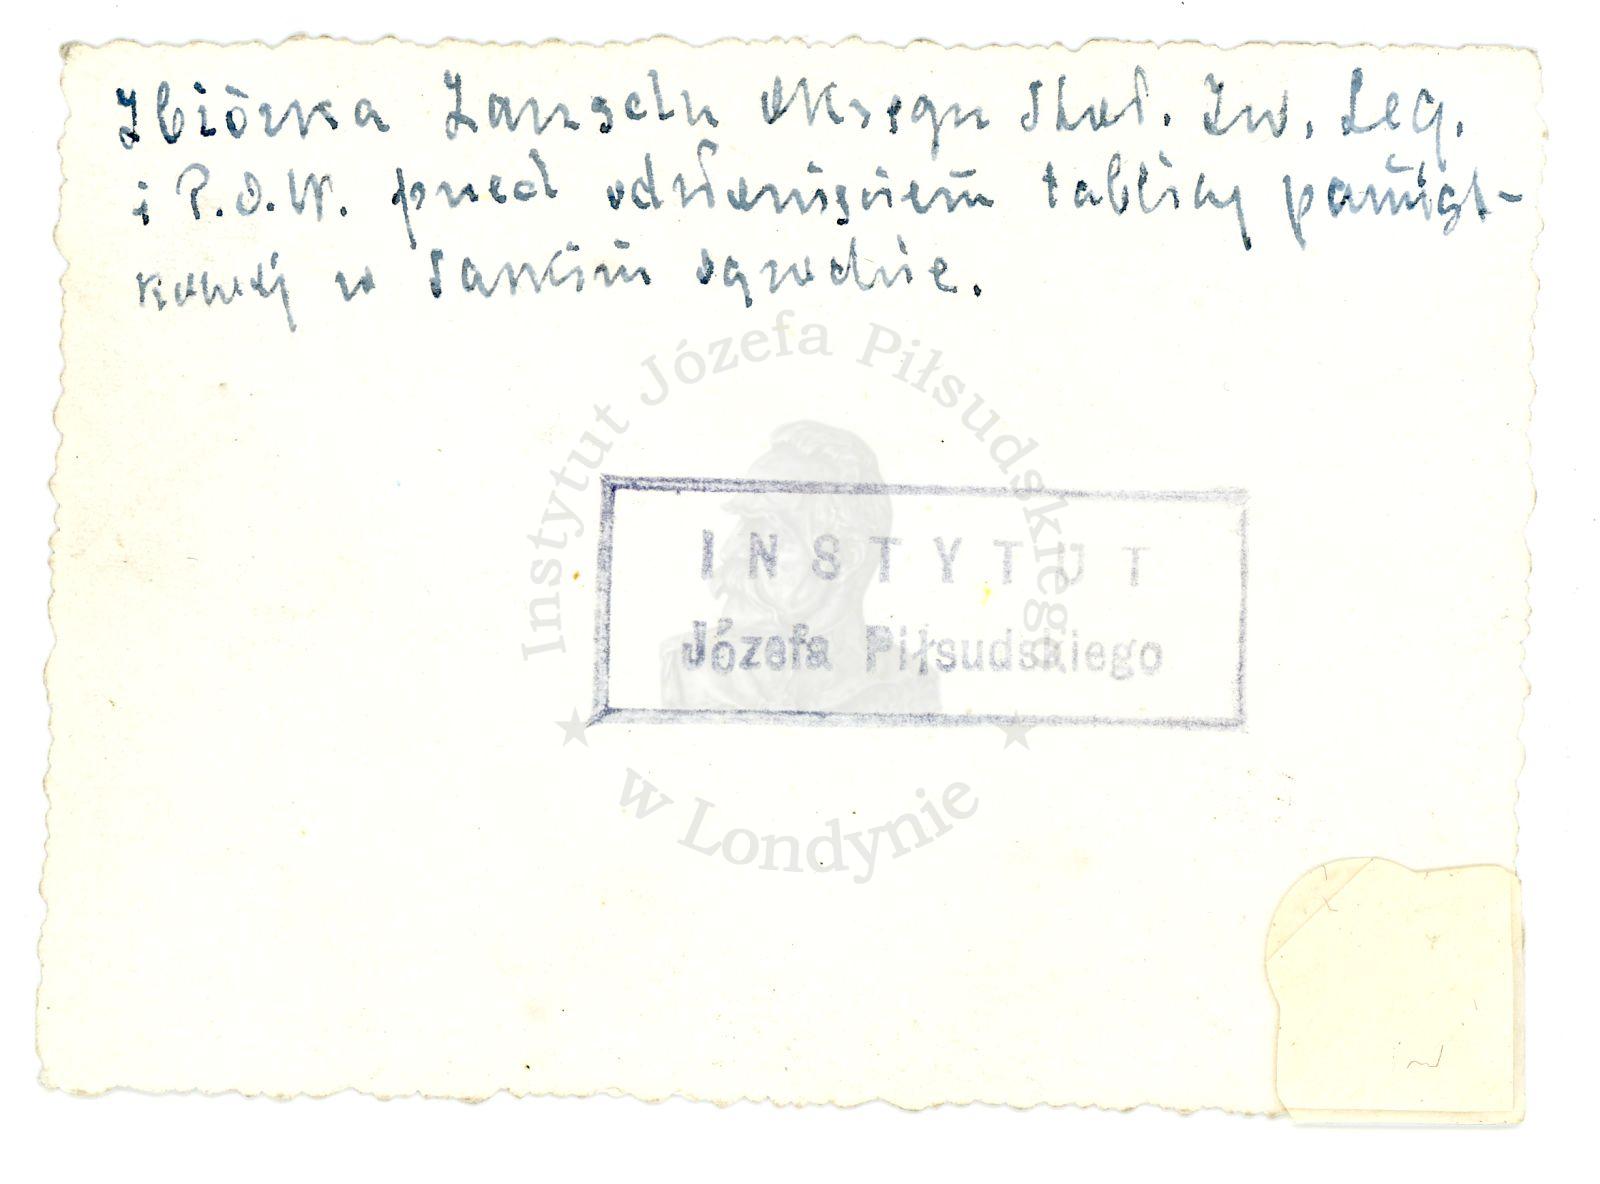 Zbiórka Zarządu Okręgu Stoł. Zw. Leg.
i P.O.W. przed odsłonięciem tablicy pamiąt-
kowej w Saskim ogrodzie.
Instytut Józefa Piłsudskiego
INSTYTUT
Józefa Piłsudskiego
w Londynie